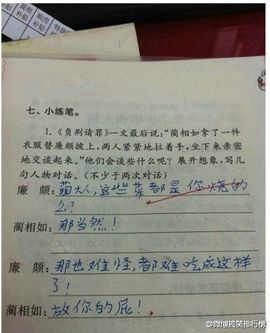 七、小练笔。
1.《负荆请罪》一文最后说:“蔺相如拿了一件
衣服替廉颇披上,两人紧紧地拉着手,坐下来亲密
地交谈起来。”他们会谈些什么呢?展开想象,写几
句人物对话。(不少于两次对话)
廉 颇:蔺大人,这些菜都是你烧的
么?
蔺相如:那当然!
廉 颇:那也难怪,都难吃成这样
了!
蔺相如:放你的屁!
@微博搞笑排行榜